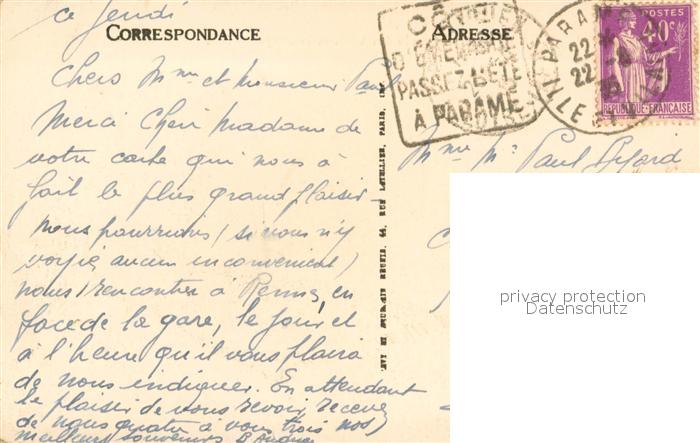 ce Jeudi
CORRESPONDANCE
ADRESSE
CÔTE
D'EMERAUDE
PASSEZ L'ÉTÉ
À PARAMÉ
PARAMÉ
22
22
ILLE
POSTES
40c
REPUBLIQUE FRANÇAISE
Chers Mme et Monsieur Paul
Merci Chère Madame de
votre carte qui nous à
fait le plus grand plaisir -
nous pourrions (si vous n'y
voyiez aucun inconvenient)
nous rencontrer à Rennes, en
face de la gare, le jour et
à l'heure qu'il vous plaira
de nous indiquer. En attendant
le plaisir de vous revoir, recevez
de nous quatre à vous trois nos
meilleurs souvenirs
LEVY ET NEURDEIN REUNIS, 44, RUE LETELLIER, PARIS, IMP
Mme Mr Paul
privacy protection
Datenschutz